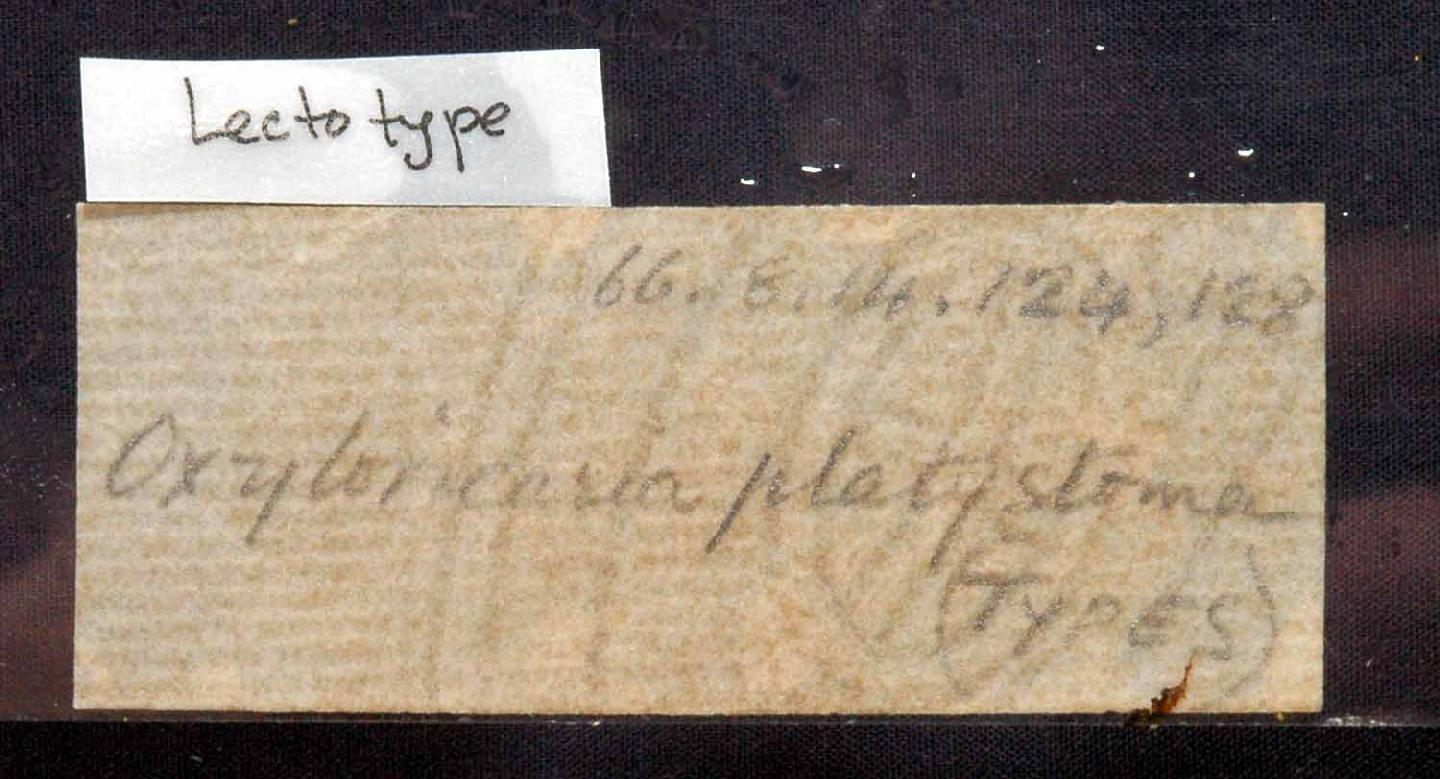 Lectotype
66.8.14.124,128
Oxyloricaria platystoma
(TYPES)